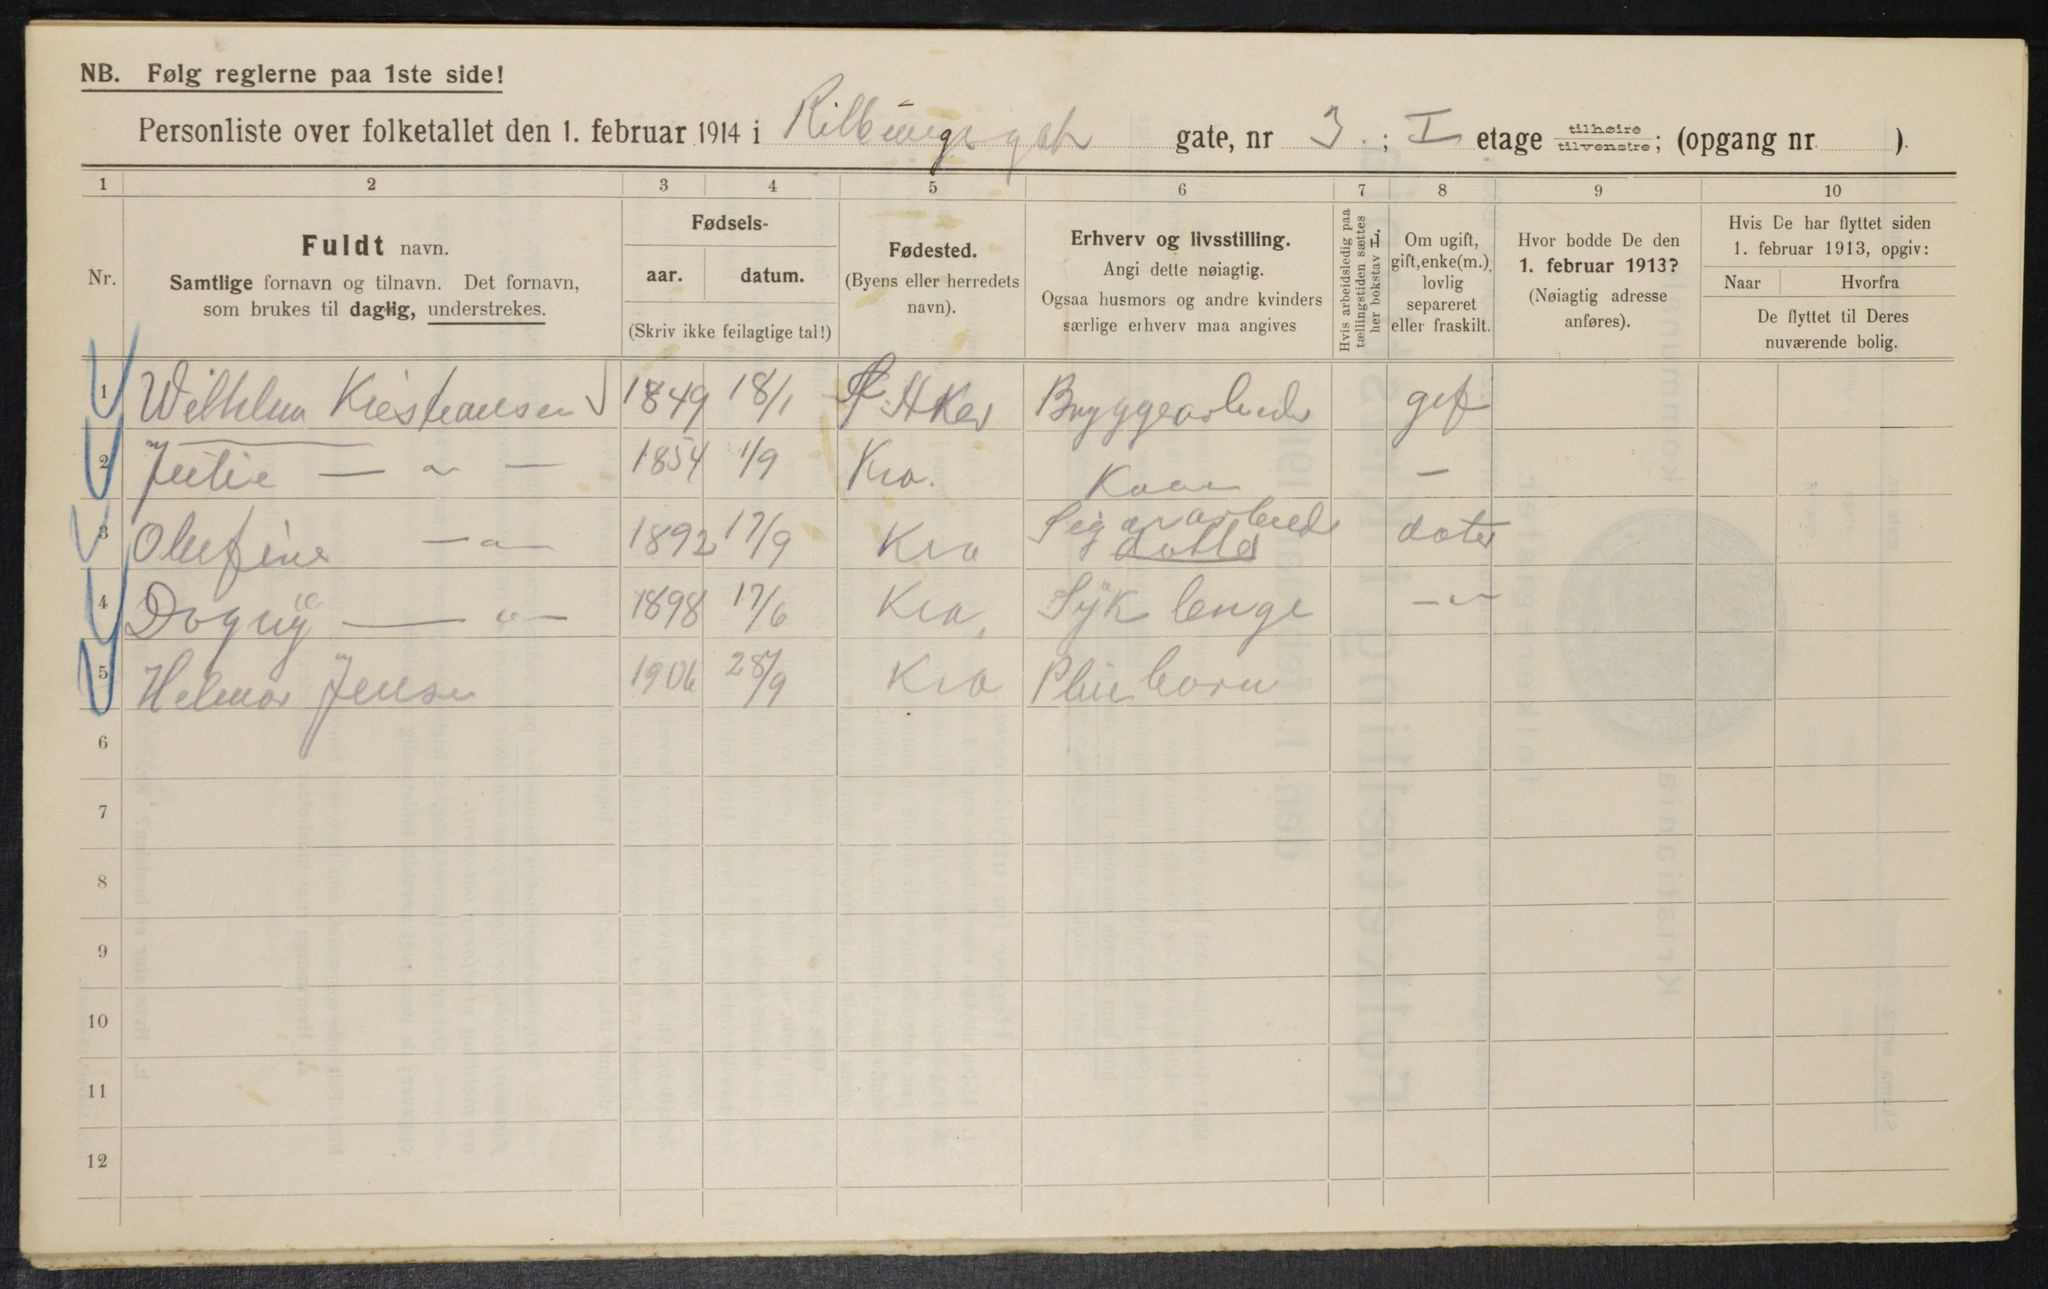 NB. Følg reglerne paa 1ste side!
Personliste over folketallet den 1. februar 1914 i gate, nr 3. ; I etage tilhøire tilvenstre; (opgang nr ).
1 2 3 4 5 6 7 8 9 10
Nr.
Fuldt navn.
Samtlige fornavn og tilnavn. Det fornavn,
som brukes til daglig, understrekes.
Fødsels-
aar. datum.
(Skriv ikke feilagtige tal!)
Fødested.
(Byens eller herredets
navn).
Erhverv og livsstilling.
Angi dette nøiagtig.
Ogsaa husmors og andre kvinders
særlige erhverv maa angives
Hvis arbeidsledig paa
tællingstiden sættes
her bokstav L.
Om ugift,
gift, enke(m.),
lovlig
separeret
eller fraskilt.
Hvor bodde De den
1. februar 1913?
(Nøiagtig adresse
anføres).
Hvis De har flyttet siden
1. februar 1913, opgiv:
Naar Hvorfra
De flyttet til Deres
nuværende bolig.
1 Wilhelm Kristiansen 1849 18/1 Aker Bryggearbeider gift
2 Julie — " — 1854 1/9 Kra. Kone —
3 Olufine — " — 1892 17/9 Kra Sigararbeid dotter doter
4 Dogny — " — 1898 17/6 Kra. — " —
5 Helmar Jensen 1906 28/9 Kra Pleiebarn
6
7
8
9
10
11
12